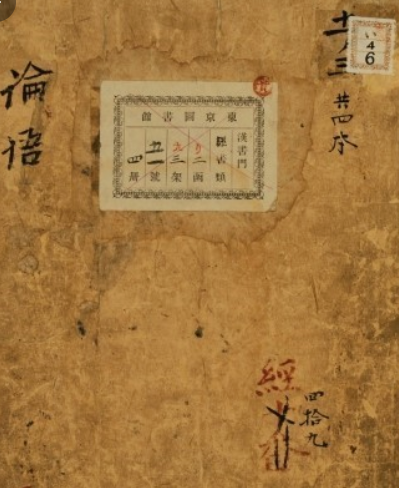 い
46
三
共四本
東京圖書館
漢書門
經書類
二函
三架
號
四冊
論語
經
四拾九